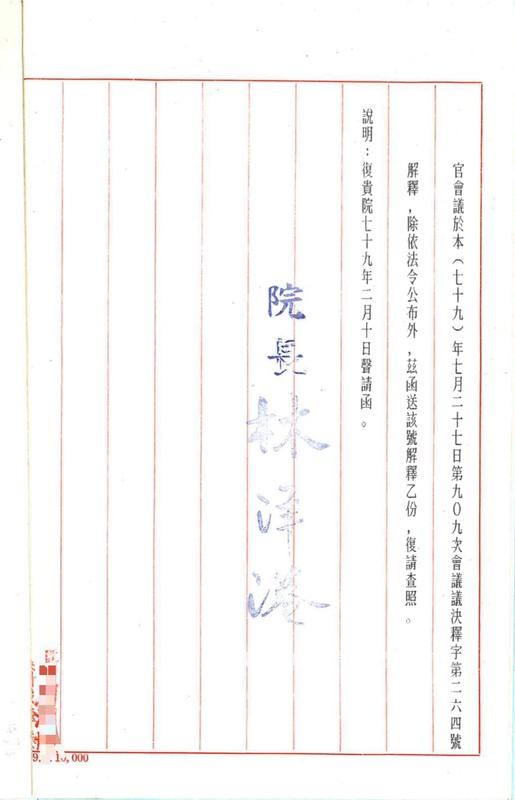 官會議於本（七十九）年七月二十七日第九０九次會議議決釋字第二六四號
解釋，除依法令公布外，茲函送該號解釋乙份，復請查照。
說明：復貴院七十九年二月十日聲請函。
院長 林洋港